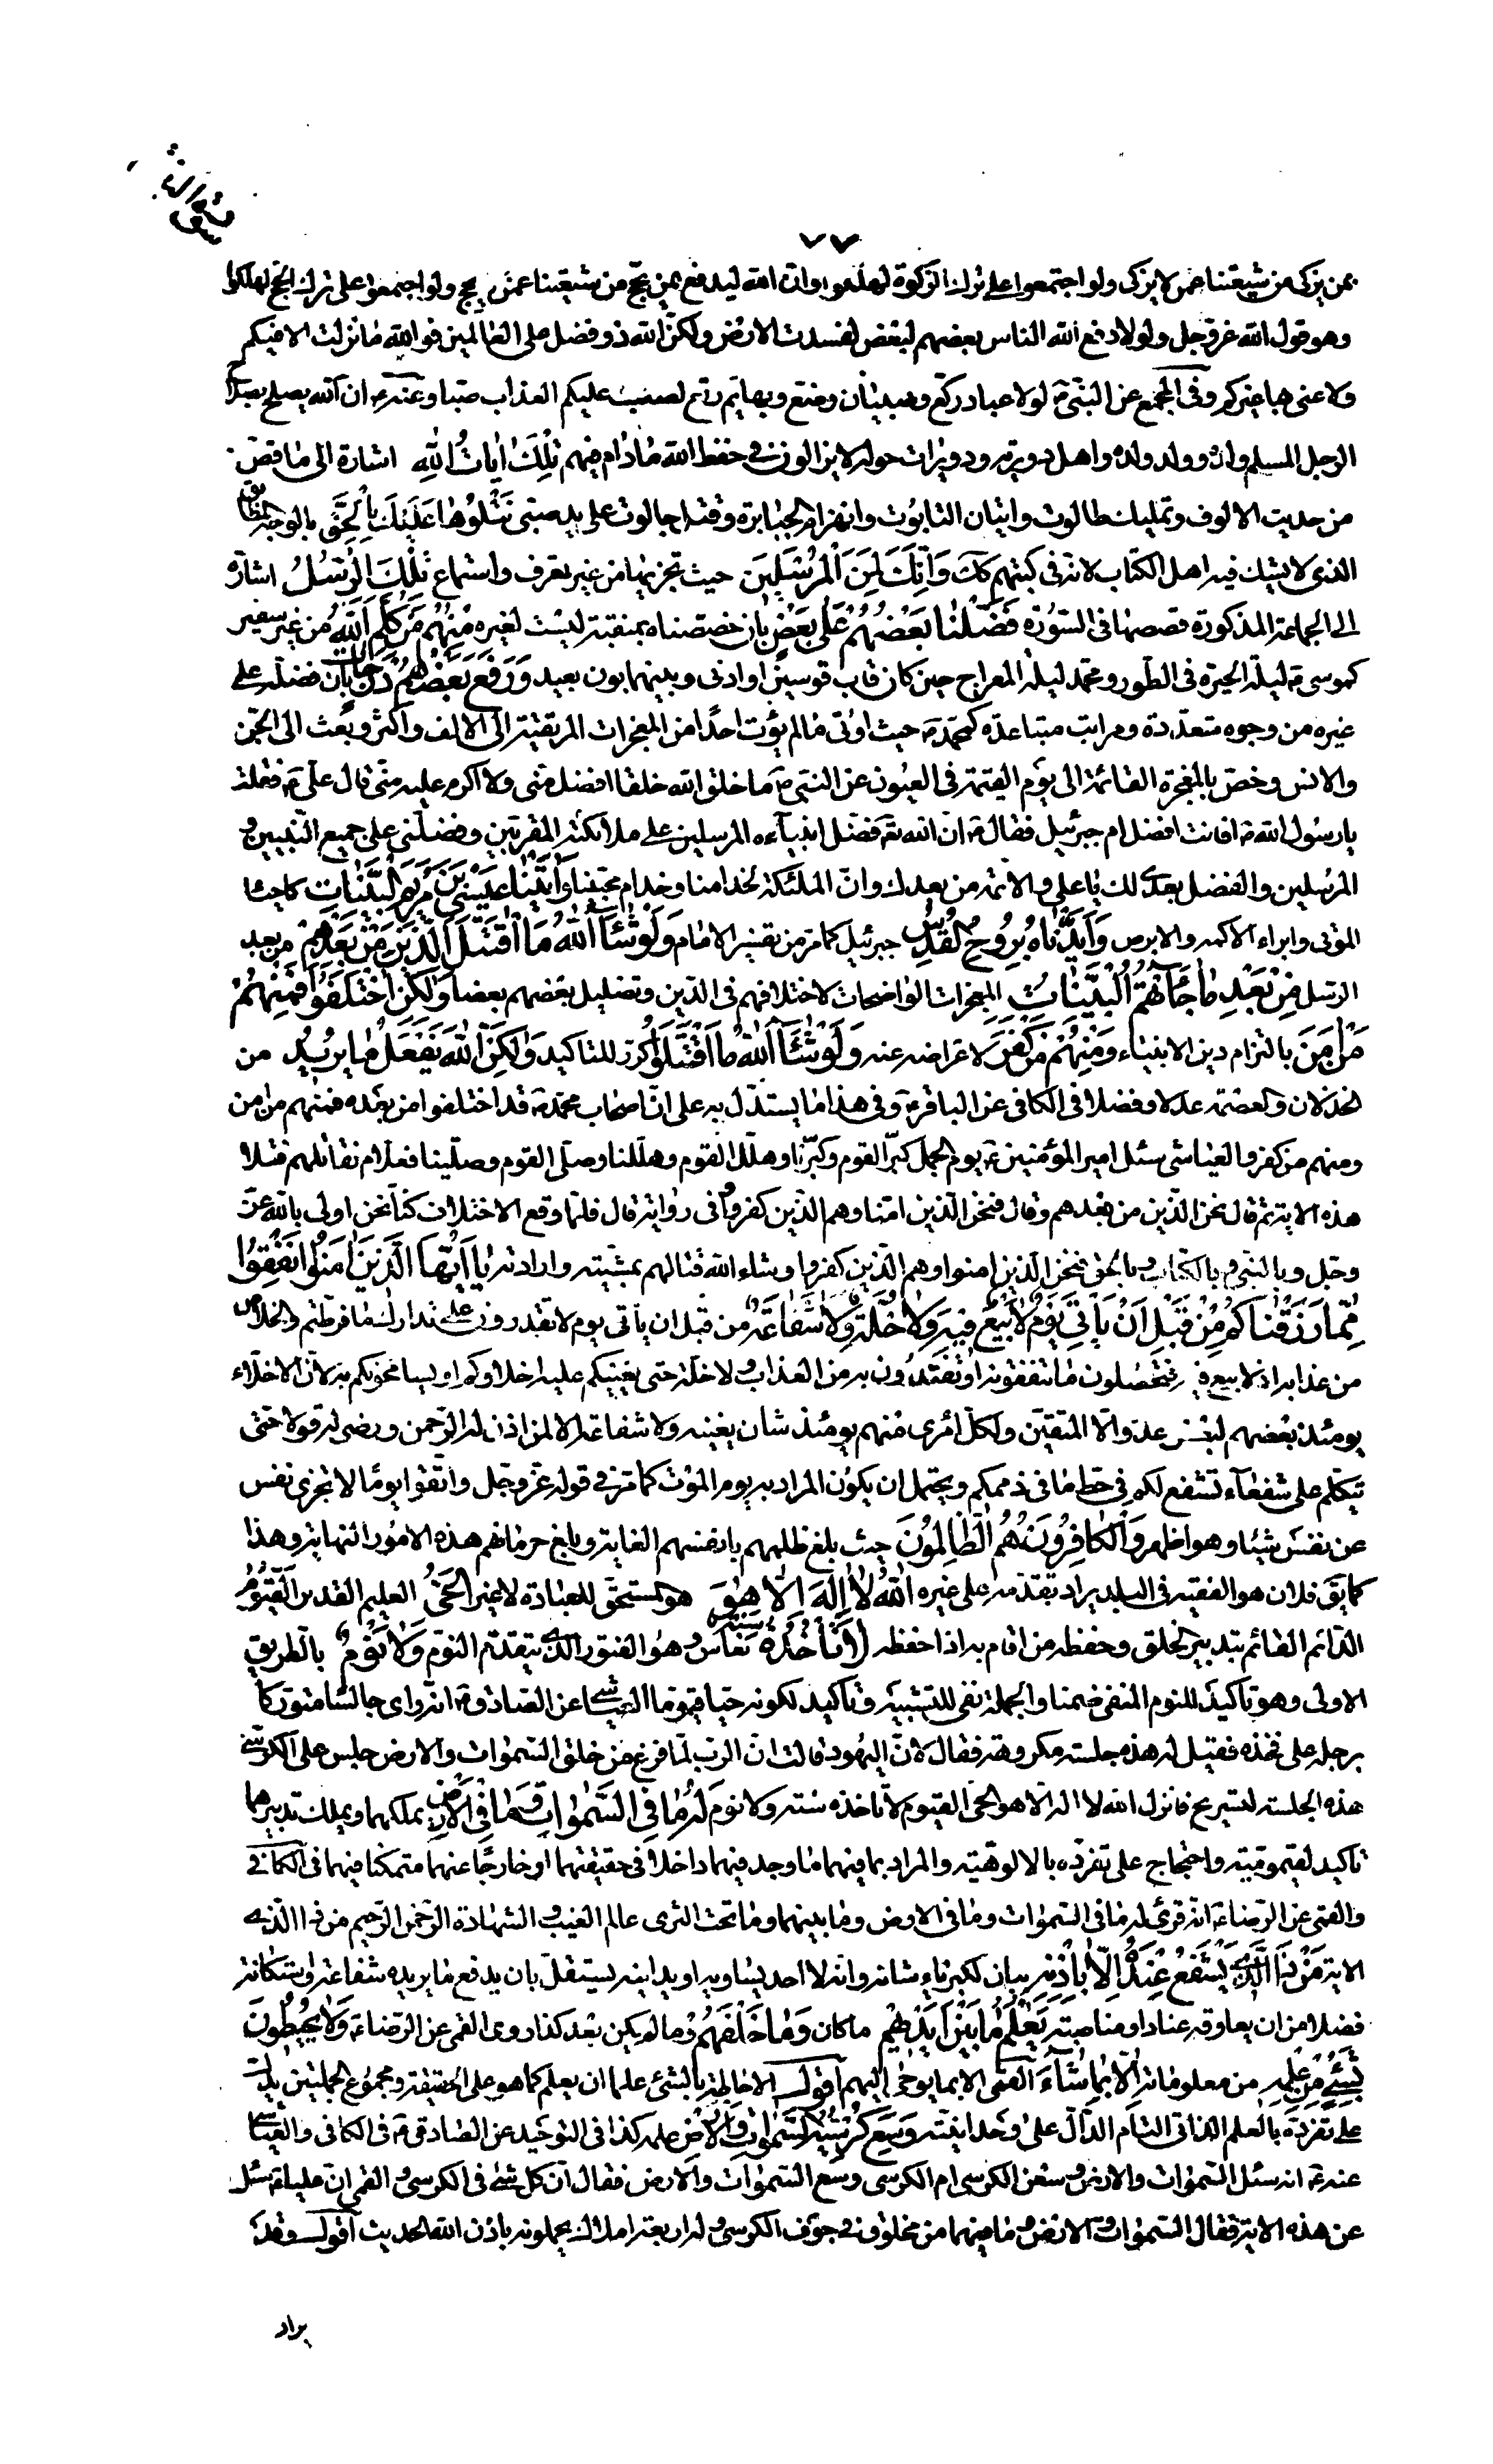 سورة البقرة
٧٧
بمن يزكى من شيعتنا عمن لا يزكى ولو اجتمعوا على ترك الزكوة لهلكوا وان الله ليدفع بمن يحج من شيعتنا عمن لا يحج ولو اجتمعوا على ترك الحج لهلكوا
وهو قول الله عز وجل ولولا دفع الله الناس بعضهم ببعض لفسدت الارض ولكن الله ذو فضل على العالمين فو الله ما نزلت الا فيكم
ولا عنى بها غيركم وفى المجمع عن النبى ص لولا عباد ركع وصبيان رضع وبهايم رتع لصب عليكم العذاب صبا وعنه ص ان الله يصلح بصلاح
الرجل المسلم ولده وولد ولده واهل دويرته ودويرات حوله لا يزالون فى حفظ الله ما دام فيهم تِلْكَ اٰيَاتُ اللهِ اشارة الى ما قص
من حديث الالوف وتمليك طالوت واتيان التابوت وانهزام الجبابرة وقتل جالوت على يد صبى نَتْلُوهَا عَلَيْكَ بِالْحَقِّ بالوجه المطابق
الذى لا يشك فيه اهل الكتاب لانه فى كتبهم كذلك وَاِنَّكَ لَمِنَ الْمُرْسَلِينَ حيث تخبر بها من غير تعرف واستماع تِلْكَ الرُّسُلُ اشارة
الى الجماعة المذكورة قصصها فى السورة فَضَّلْنَا بَعْضَهُمْ عَلَى بَعْضٍ بان خصصناه بمنقبة ليست لغيره مِنْهُمْ مَنْ كَلَّمَ اللهُ من غير سفير
كموسى ع ليلة الحيرة فى الطور ومحمد ليلة المعراج حين كان قاب قوسين او ادنى وبينهما بون بعيد وَرَفَعَ بَعْضَهُمْ دَرَجَاتٍ بان فضله على
غيره من وجوه متعددة ومراتب متباعدة كمحمد ص حيث اوتى ما لم يؤت احدا من المعجزات المرتقية الى الالف واكثر وبعث الى الجن
والانس وخص بالمعجزة القائمة الى يوم القيمة فى العيون عن النبى ص ما خلق الله خلقا افضل منى ولا اكرم عليه منى قال على ع فقلت
يا رسول الله ص افانت افضل ام جبرئيل فقال ص ان الله تع فضل انبيآءه المرسلين على ملائكته المقربين وفضلنى على جميع النبيين و
المرسلين والفضل بعدى لك يا على وللائمة من بعدك وان الملئكة لخدامنا وخدام محبينا وَاٰتَيْنَا عِيسَى بْنَ مَرْيَمَ الْبَيِّنَاتِ كاحياء
الموتى وابراء الاكمه والابرص وَاَيَّدْنَاهُ بِرُوحِ الْقُدُسِ جبرئيل كما مر من تفسير الامام وَلَوْ شَآءَ اللهُ مَا اقْتَتَلَ الَّذِينَ مِنْ بَعْدِهِمْ من بعد
الرسل مِنْ بَعْدِ مَا جَآءَتْهُمُ الْبَيِّنَاتُ المعجزات الواضحات لاختلافهم فى الدين وتضليل بعضهم بعضا وَلٰكِنِ اخْتَلَفُوا فَمِنْهُمْ
مَنْ اٰمَنَ بالتزام دين الانبياء وَمِنْهُمْ مَنْ كَفَرَ لاعراضه عنه وَلَوْ شَآءَ اللهُ مَا اقْتَتَلُوا كرر للتاكيد وَلٰكِنَّ اللهَ يَفْعَلُ مَا يُرِيدُ من
الخذلان والعصمة عدلا وفضلا فى الكافى عن الباقر ع وفى هذا ما يستدل به على ان اصحاب محمد ص قد اختلفوا من بعده فمنهم من امن
ومنهم من كفر والعياشى سئل امير المؤمنين ع يوم الجمل كبر القوم وكبرنا وهلل القوم وهللنا وصلى القوم وصلينا فعلام نقاتلهم فتلا
هذه الاية ثم قال نحن الذين من بعدهم وقال فنحن الذين امنا وهم الذين كفروا وفى رواية قال فلما وقع الاختلاف كنا نحن اولى بالله عز
وجل وبالنبى ص وبالكتاب وبالحق فنحن الذين امنوا وهم الذين كفروا وشاء الله قتالهم بمشيته وارادته يَا اَيُّهَا الَّذِينَ اٰمَنُوا اَنْفِقُوا
مِمَّا رَزَقْنَاكُمْ مِنْ قَبْلِ اَنْ يَاْتِيَ يَوْمٌ لَا بَيْعٌ فِيهِ وَلَا خُلَّةٌ وَلَا شَفَاعَةٌ من قبل ان يأتى يوم لا تقدرون على تدارك ما فرطتم والخلاص
من عذابه اذ لا بيع فيه فتحصلون ما تنفقونه او تفتدون به من العذاب ولا خلة حتى يعينكم عليه اخلاؤكم او يسامحونكم به لان الاخلاء
يومئذ بعضهم لبعض عدو الا المتقين ولكل امرى منهم يومئذ شان يغنيه ولا شفاعة الا لمن اذن له الرحمن ورضى له قولا حتى
تتكلم على شفعآء تشفع لكم فى حط ما فى ذممكم ويحتمل ان يكون المراد به يوم الموت كما مر فى قوله عز وجل واتقوا يوما لا تجزى نفس
عن نفس شيئا وهو اظهر وَالْكَافِرُونَ هُمُ الظَّالِمُونَ حيث بلغ ظلمهم بانفسهم الغاية وبلغ حرمانهم هذه الامور النهاية وهذا
كما يق فلان هو الفقيه فى البلد يراد تقدمه على غيره اَللهُ لَا اِلٰهَ اِلَّا هُوَ هو المستحق للعبادة لا غير الْحَيُّ العليم القدير الْقَيُّومُ
الدائم القائم بتدبير الخلق وحفظه من اقام به اذا حفظه لَا تَاْخُذُهُ سِنَةٌ نعاس وهو الفتور الذى يتقدم النوم وَلَا نَوْمٌ بالطريق
الاولى وهو تاكيد للنوم المنفى ضمنا والجملة نفى للتشبيه وتاكيد لكونه حيا قيوما العياشى عن الصادق ع انه راى جالسا متوركا
برجله على فخذه فقيل له هذه جلسة مكروهة فقال لا ان اليهود قالت ان الرب لما فرغ من خلق السموات والارض جلس على الكرسى
هذه الجلسة ليستريح فانزل الله لا اله الا هو الحى القيوم لا تاخذه سنة ولا نوم لَهُ مَا فِي السَّمٰوَاتِ وَمَا فِي الْاَرْضِ يملكهما ويملك تدبيرهما
تاكيد لقيوميته واحتجاج على تفرده بالالوهية والمراد بما فيهما ما وجد فيهما داخلا فى حقيقتهما او خارجا عنهما متمكنا فيهما فى الكافى
والقمى عن الرضا ع انه قرئ له ما فى السموات وما فى الارض وما بينهما وما تحت الثرى عالم الغيب والشهادة الرحمن الرحيم من ذا الذى
الاية مَنْ ذَا الَّذِي يَشْفَعُ عِنْدَهُ اِلَّا بِاِذْنِهِ بيان لكبرياء شانه وانه لا احد يساويه او يدانيه يستقل بان يدفع ما يريده شفاعة واستكانة
فضلا من ان يعاوقه عنادا ومناصبة يَعْلَمُ مَا بَيْنَ اَيْدِيهِمْ ما كان وَمَا خَلْفَهُمْ وما لم يكن بعد كذا روى القمى عن الرضا ع وَلَا يُحِيطُونَ
بِشَيْءٍ مِنْ عِلْمِهِ من معلوماته اِلَّا بِمَا شَآءَ القمى الا بما يوحى اليهم اقول الاحاطة بالشئ علما ان يعلم كما هو على الحقيقة ومجموع الجملتين يدل
على تفرده بالعلم الذاتى التام الدال على وحدانيته وَسِعَ كُرْسِيُّهُ السَّمٰوَاتِ وَالْاَرْضَ علمه كذا فى التوحيد عن الصادق ع فى الكافى والعياشى
عنه ع انه سئل السموات والارض وسعن الكرسى ام الكرسى وسع السموات والارض فقال ان كل شئ فى الكرسى والقمى ان عليا ع سئل
عن هذه الاية فقال السموات والارض وما فيهما من مخلوق فى جوف الكرسى وله اربعة املاك يحملونه باذن الله الحديث اقول وقد
يراد